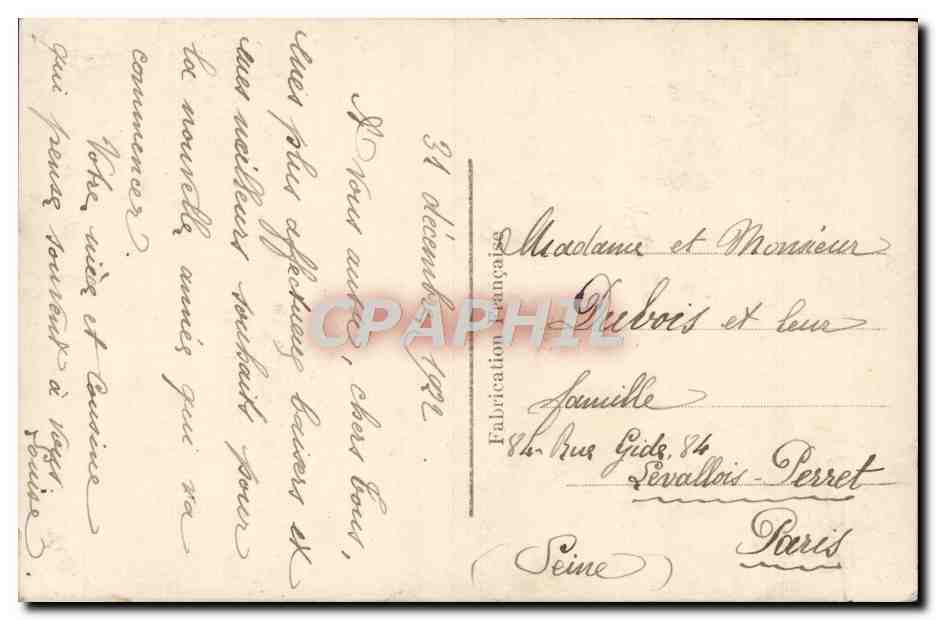 31 décembre 1922.
A Vous autres, chers tous,
mes plus affectueux baisers et
mes meilleurs souhaits pour
la nouvelle année qui va
commencer.
Votre nièce et Cousine
qui pense souvent à vous
Louise.
Fabrication Française
Madame et Monsieur
Dubois et leur
famille
84 Rue Gide, 84
Levallois-Perret
Paris
(Seine)
CPAPHIL